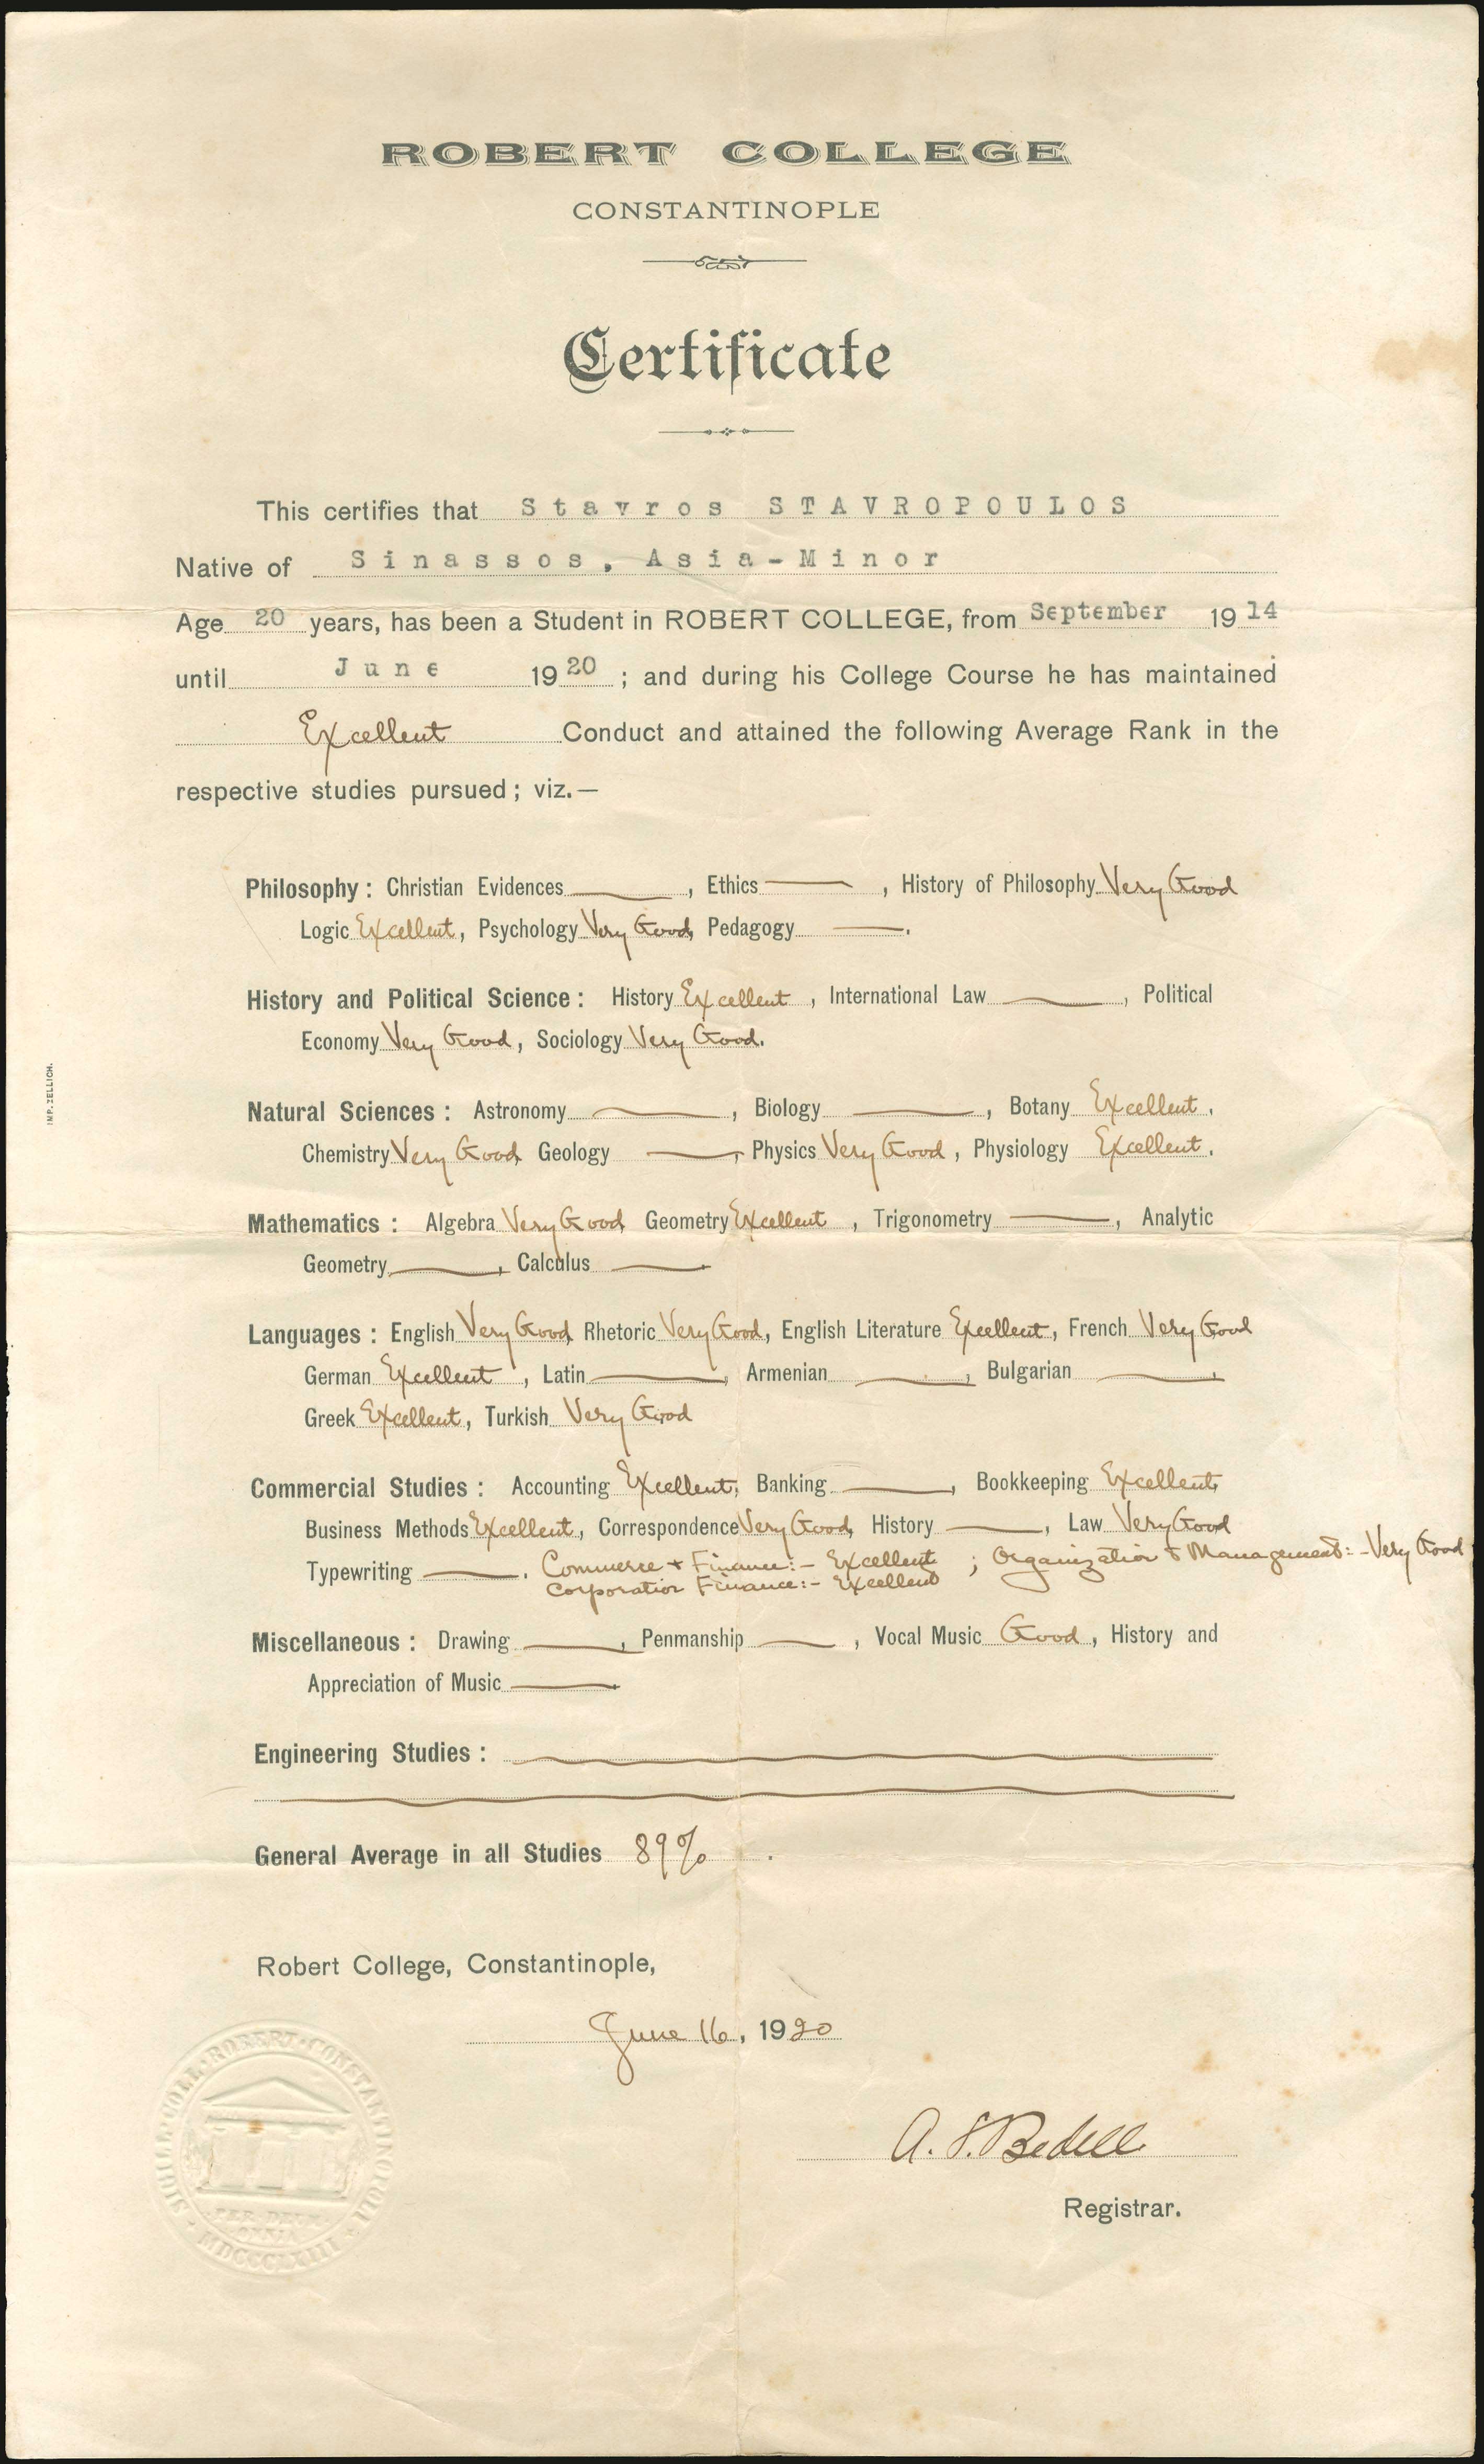 ROBERT COLLEGE
CONSTANTINOPLE
Certificate
This certifies that Stavros STAVROPOULOS
Native of Sinassos, Asia-Minor
Age 20 years, has been a Student in ROBERT COLLEGE, from September 1914
until June 1920 ; and during his College Course he has maintained
Excellent Conduct and attained the following Average Rank in the
respective studies pursued ; viz.—
Philosophy : Christian Evidences —, Ethics — , History of Philosophy Very Good
Logic Excellent, Psychology Very Good, Pedagogy —.
History and Political Science : History Excellent , International Law —, Political
Economy Very Good, Sociology Very Good.
Natural Sciences : Astronomy —, Biology —, Botany Excellent,
Chemistry Very Good, Geology —, Physics Very Good, Physiology Excellent.
Mathematics : Algebra Very Good, Geometry Excellent , Trigonometry —, Analytic
Geometry —, Calculus —.
Languages : English Very Good, Rhetoric Very Good, English Literature Excellent, French Very Good
German Excellent , Latin —, Armenian —, Bulgarian —,
Greek Excellent, Turkish Very Good
Commercial Studies : Accounting Excellent, Banking —, Bookkeeping Excellent,
Business Methods Excellent, Correspondence Very Good, History —, Law Very Good
Typewriting —. Commerce & Finance:- Excellent ; Organization & Management:- Very Good
Corporation Finance:- Excellent
Miscellaneous : Drawing —, Penmanship — , Vocal Music Good, History and
Appreciation of Music —.
Engineering Studies : —
General Average in all Studies 89% .
Robert College, Constantinople,
June 16, 1920
A. S. Bedell
Registrar.
SIGILL·COLL·ROBERT·CONSTANTINOPOLI·
PER DEUM
OMNIA
MDCCCLXIII
IMP. ZELLICH.